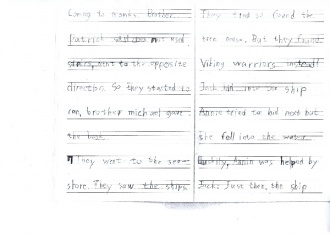 Coming to monks. Brother
Patrick said not use
stairs, went to the opposite
direction. So they started to
run, brother michael gave
the book.
They went to the sea
shore. They saw the ships
They tried to found the
tree house. But they found
Viking warriors instead!
Jack into the ship
Annie tried to but not but
she fell into the water
Luckily, Annie was helped by
Jack. Just then, the ship